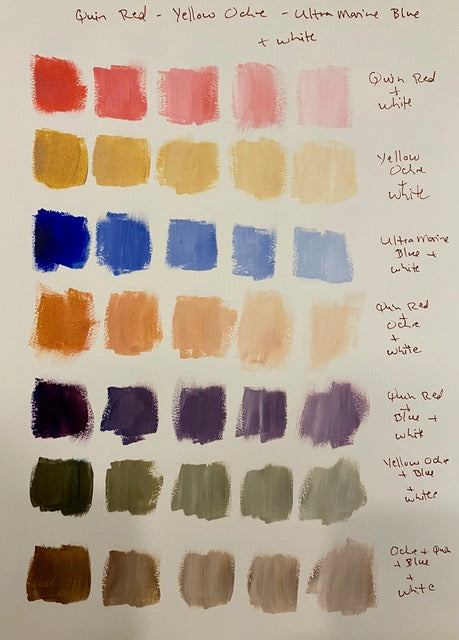 Quin Red - Yellow Ochre - Ultra Marine Blue
+ white
Quin Red
+
white
Yellow
Ochre
+
white
Ultra Marine
Blue +
white
Quin Red
+
Ochre
+
white
Quin Red
+
Blue +
white
Yellow Ochre
+ Blue
+
white
Ochre + Quin
+ Blue
+
white